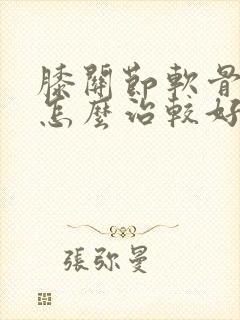 膝關節軟骨
怎麼治較好
張弥曼